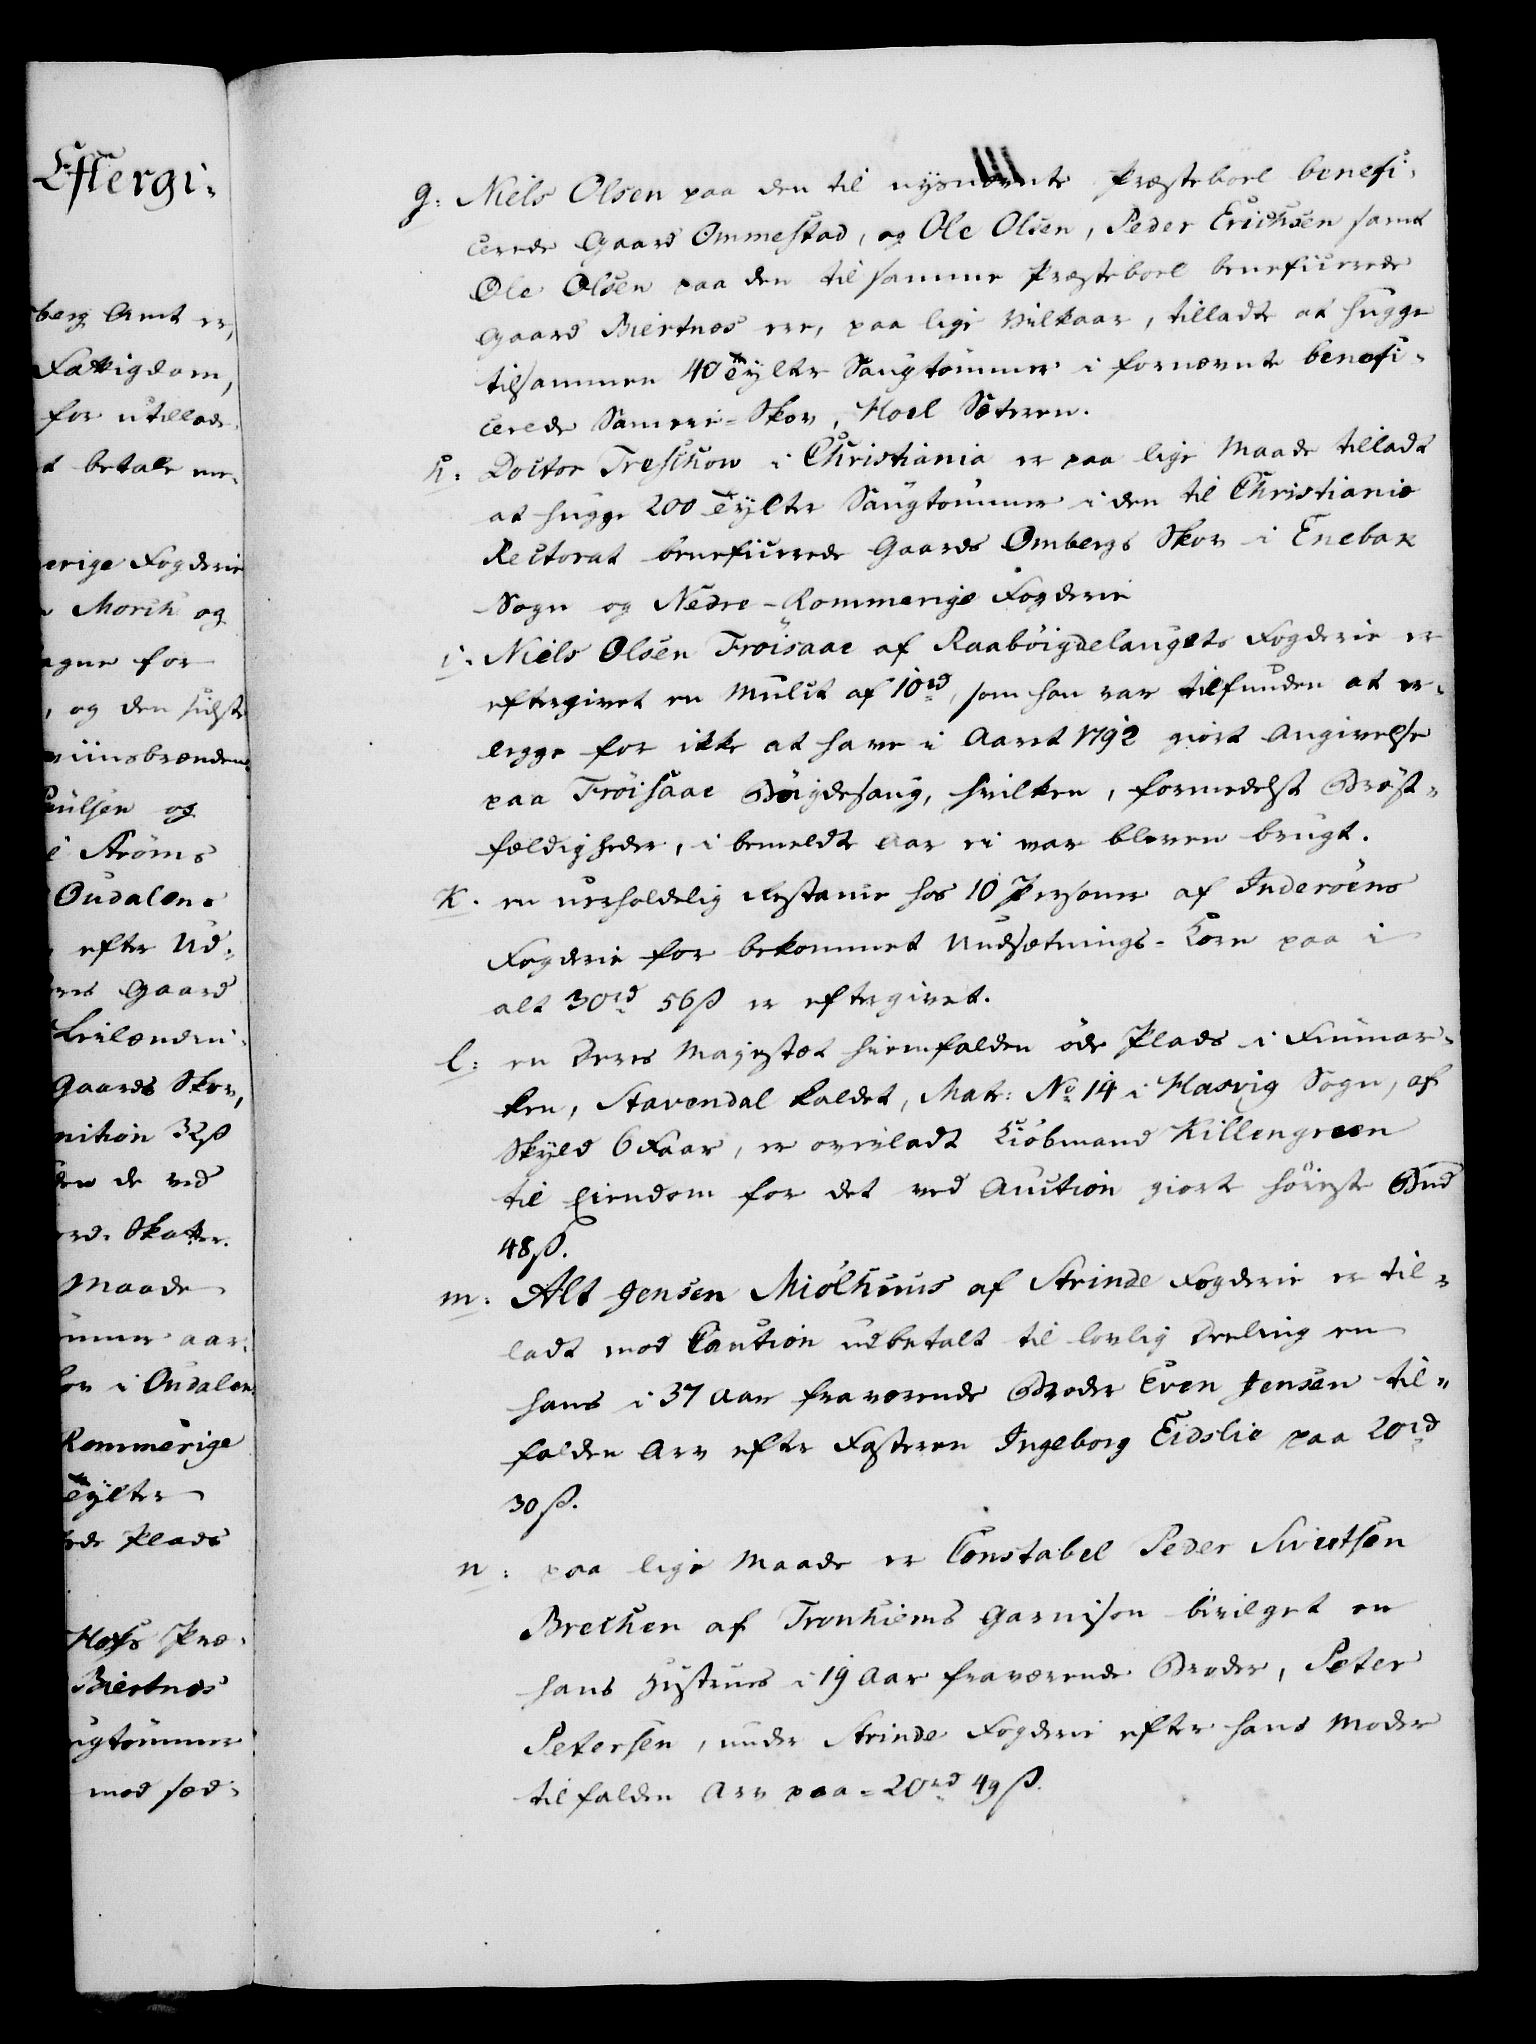 Eftergi-
berg Amt er,
Fattigdom,
for utillade
t betale me-
erige Fogderie
Morch og
agne for
, og den sidste
viinsbrænden
Poulsen og
i Ströms
Oudalens
efter Ud-
res Gaard
Leilændin-
Gaards Skov,
nition 32 ß
den de ved
ord. Skatter.
Maade
ömmer aar-
kov i Oudalen
Rommerige
Tylter
rede Plads
Hofs Præ-
Biertnæs
ugtömmer
mod sæd-
g: Niels Olsen paa den til nysnævnte Præsteboel benefi-
cerede Gaard Ommestad, og Ole Olsen, Peder Erichsen samt
Ole Olsen paa den til samme Præsteboel beneficerede
Gaard Biertnæs ere, paa lige Vilkaar, tilladt at hugge
tilsammen 40 Tylter Saugtömmer i fornævnte benefi-
cerede Sameie-Skov, Hoel Sæteren.
h: Doctor Treschow i Christiania er paa lige Maade tilladt
at hugge 200 Tylter Saugtömmer i den til Christiania
Rectorat beneficerede Gaards Ombergs Skov i Enebak
Sogn og Nedre-Rommerige Fogderie
i. Niels Olsen Fröisaae af Raaböigdelaugets Fogderie er
eftergivet en Mulct af 10 rd, som han var tilfunden at er-
legge for ikke at have i Aaret 1792 giort Angivelse
paa Fröisaae Böigdesaug, hvilken, formedelst Bröst-
fældigheder, i bemeldte Aar ei var bleven brugt.
K. en uerholdelig Restance hos 10 Personer af Inderöens
Fogderie for bekommet Undsætnings-Korn paa i
alt 30 rd 56 ß er eftergivet.
l: en Deres Majestæt hiemfalden öde Plads i Finmar-
ken, Stavendal kaldet, Matr: No 14 i Hasvig Sogn, af
Skyld 6 Faar, er overladt Kiöbmand Killengreen
til Eiendom for det ved Auction giort höieste Bud
48 ß.
m. Alt Jensen Miölhuus af Strinde Fogderie er til-
ladt mod Caution udbetalt til lovlig Deeling en
hans i 37 Aar fraværende Broder Even Jensen til-
falden Arv efter Fasteren Ingeborg Eidslie paa 20 rd
30 ß.
n: paa lige Maade er Constabel Peder Sivertsen
Brechen af Tronhiems Garnison bevilget en
hans Hustrues i 19 Aar fraværende Broder, Peter
Petersen, under Strinde Fogderie efter hans Moder
tilfalden Arv paa - 20 rd 49 ß.